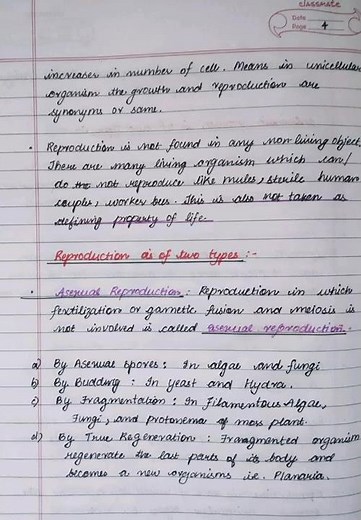 classmate
Date
Page 4
increases in number of cell. Means in unicellular
organism the growth and reproduction are
synonyms or same.
• Reproduction is not found in any non living object
There are many living organism which can/
do the not reproduce like mules, sterile human
couples, worker bees. This is also not taken as
defining property of life.
Reproduction is of two types :-
• Asexual Reproduction : Reproduction in which
fertilization or gametic fusion and meiosis is
not involved is called asexual reproduction.
a) By Asexual spores : In algae and fungi
b) By Budding : In yeast and Hydra.
c) By Fragmentation : In Filamentous Algae,
Fungi, and protonema of moss plant.
d) By True Regeneration : Fragmented organism
regenerate the lost parts of its body and
becomes a new organisms i.e. Planaria.